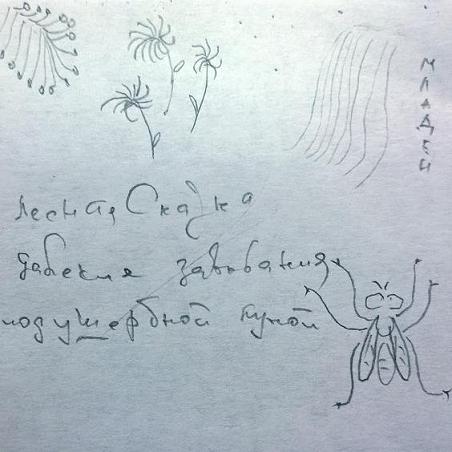 МЛАДЕН
Лесная Сказка
далекие завывания
под ущербной луной